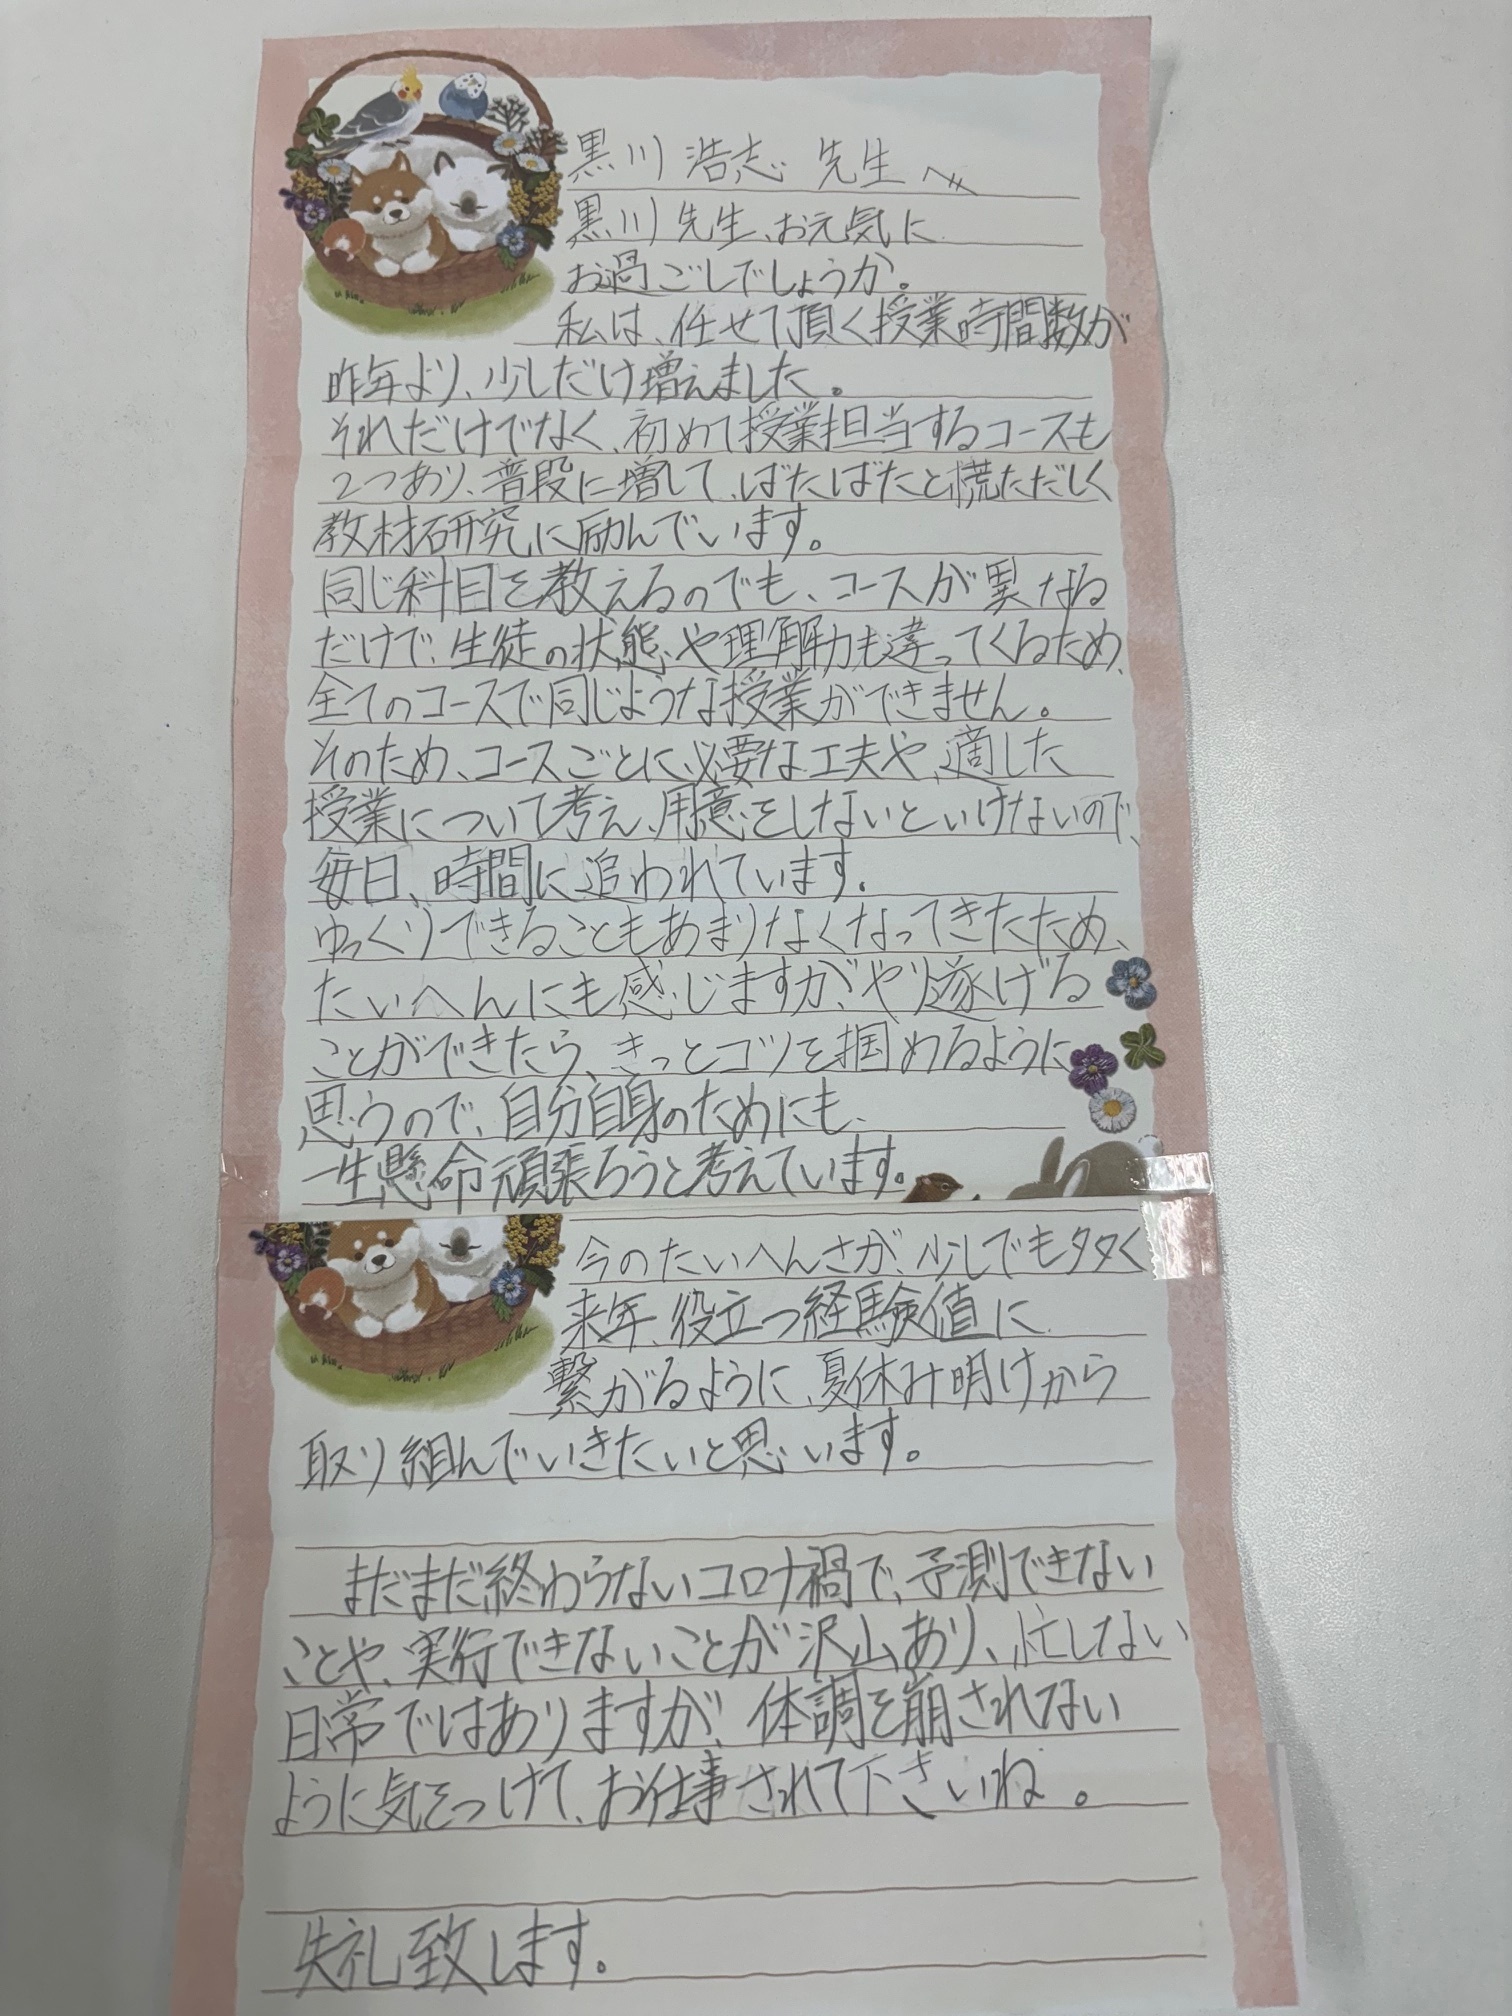 黒川 浩志 先生へ
黒川先生、お元気に
お過ごしでしょうか。
私は、任せて頂く授業時間数が
昨年より、少しだけ増えました。
それだけでなく、初めて授業担当するコースも
2つあり、普段に増して、ばたばたと慌ただしく
教材研究に励んでいます。
同じ科目を教えるのでも、コースが異なる
だけで、生徒の状態や理解力も違ってくるため、
全てのコースで同じような授業ができません。
そのため、コースごとに必要な工夫や、適した
授業について考え、用意をしないといけないので、
毎日、時間に追われています。
ゆっくりできることもあまりなくなってきたため、
たいへんにも感じますが、やり遂げる
ことができたら、きっとコツを掴めるように
思うので、自分自身のためにも、
一生懸命頑張ろうと考えています。
今のたいへんさが、少しでも多く
来年、役立つ経験値に
繋がるように、夏休み明けから
取り組んでいきたいと思います。
まだまだ終わらないコロナ禍で、予測できない
ことや、実行できないことが沢山あり、忙しない
日常ではありますが、体調を崩されない
ように気をつけて、お仕事されて下さいね。
失礼致します。